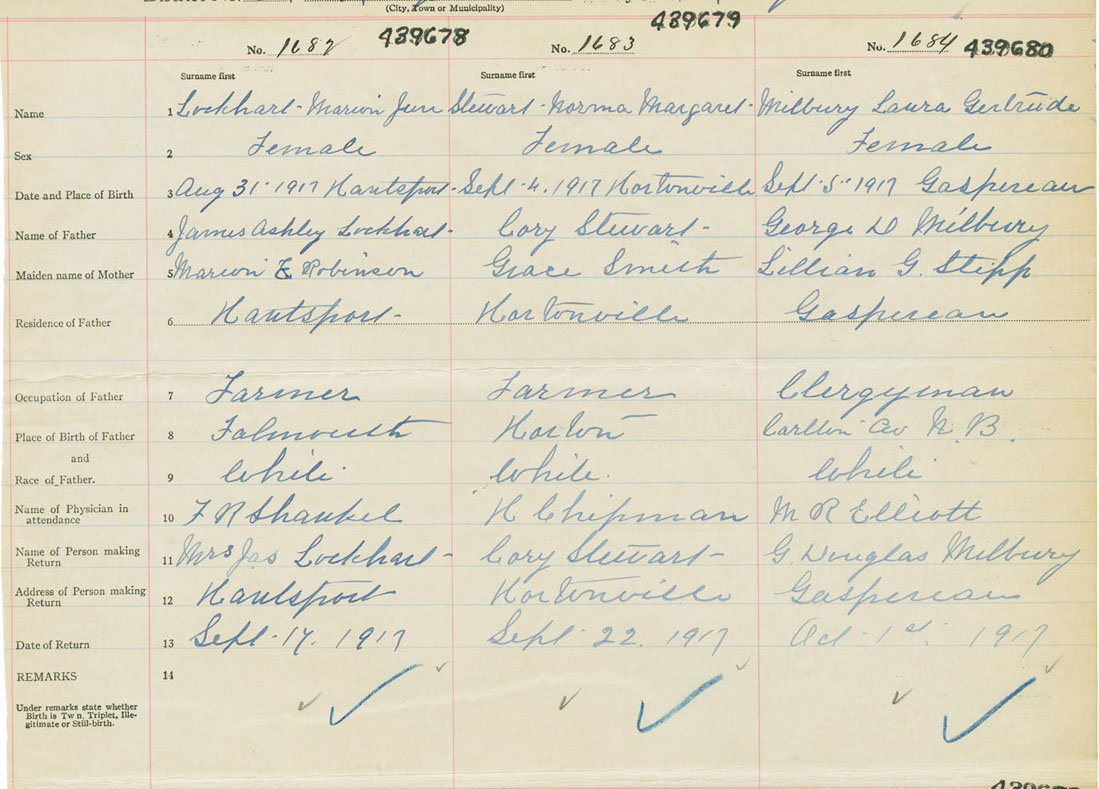 (City, Town or Municipality)
No. 1682 439678 No. 1683 439679 No. 1684 439680
Surname first Surname first Surname first
Name 1 Lockhart - Marion Jun Stewart - Norma Margaret - Milbury Laura Gertrude
Sex 2 Female Female Female
Date and Place of Birth 3 Aug 31 - 1917 Hantsport - Sept - 4. 1917 Hortonville Sept - 5 - 1917 Gaspereau
Name of Father 4 James Ashley Lockhart - Cory Stewart - George D Milbury
Maiden name of Mother 5 Marion E Robinson Grace Smith Lillian G. Stipp
Residence of Father 6 Hantsport - Hortonville Gaspereau
Occupation of Father 7 Farmer Farmer Clergyman
Place of Birth of Father 8 Falmouth Horton Carlton Co N. B.
and
Race of Father. 9 White White. White
Name of Physician in
attendance 10 F R Shankel H Chipman M R Elliott
Name of Person making
Return 11 Mrs Jas Lockhart - Cory Stewart - G. Douglas Milbury
Address of Person making
Return 12 Hantsport Hortonville Gaspereau
Date of Return 13 Sept - 17. 1917 Sept - 22. 1917 Oct - 1st 1917
REMARKS 14
Under remarks state whether
Birth is Tw n, Triplet, Ille-
gitimate or Still-birth.